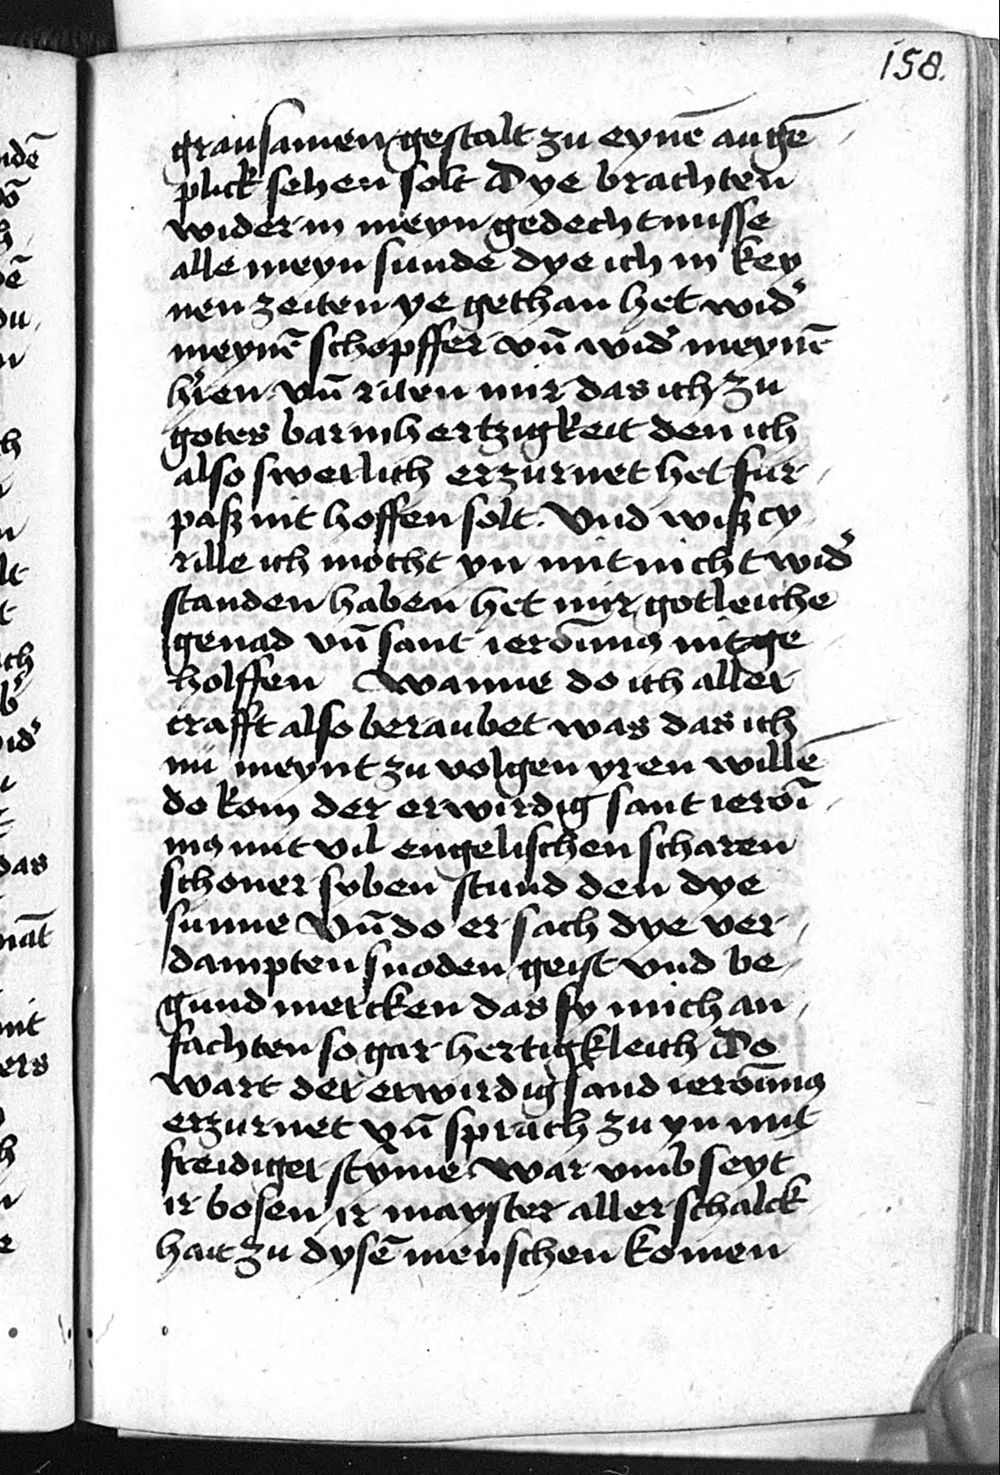 158.
grausamen gestalt zu eynē augē
plick sehen solt Dye brachten
wider in meyn gedechtnusse
alle meyn sunde dye ich in key
nen zeiten ye gethan het wid'
meynē schopffer vn̄ wid' meynē
h'ren vn̄ riten mir das ich zu
gotes barmhertzigkeit den ich
also swerlich erzurnet het fur
paß nit hoffen solt. Vnd wiß cy
rille ich mocht yn mit nicht wid'
standen haben het mir gotleiche
genad vn̄ sant ieronimus nit ge
holffen Wanne do ich aller
crafft also beraubet was das ich
nü meynt zu volgen yren willē
do kom der erwirdig sant ieroi
mus mit vil engelischen scharen
schoner syben stund den dye
sunne Vn̄ do er sach dye ver
dampten snoden geist vnd be
gund mercken das sy mich an
fachten so gar hertigkleich Do
wart der erwirdig sand ieronimus
erzurnet vn̄ sprach zu yn mit
freidiger styme war vmb seyt
ir bosen ir mayster aller schalck
hait zu dysē menschen komen